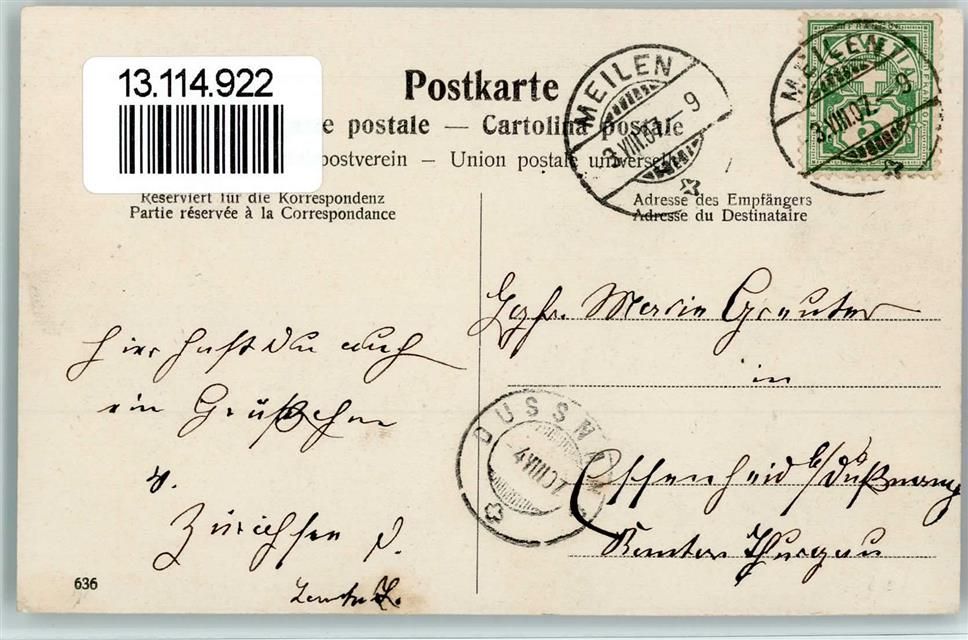 13.114.922
Postkarte
postale — Cartolina postale
postverein – Union postale universelle
Reserviert für die Korrespondenz
Partie réservée à la Correspondance
Adresse des Empfängers
Adresse du Destinataire
MEILEN
3.VIII.07.-9
MEILEN
3.VIII.07.-9
DUSSNANG
4.VIII.07
Marie Greuter
in
b/ Dußnang
Kanton Thurgau
Hier hast Du auch
ein Grüßchen
v.
Zürichsee
636